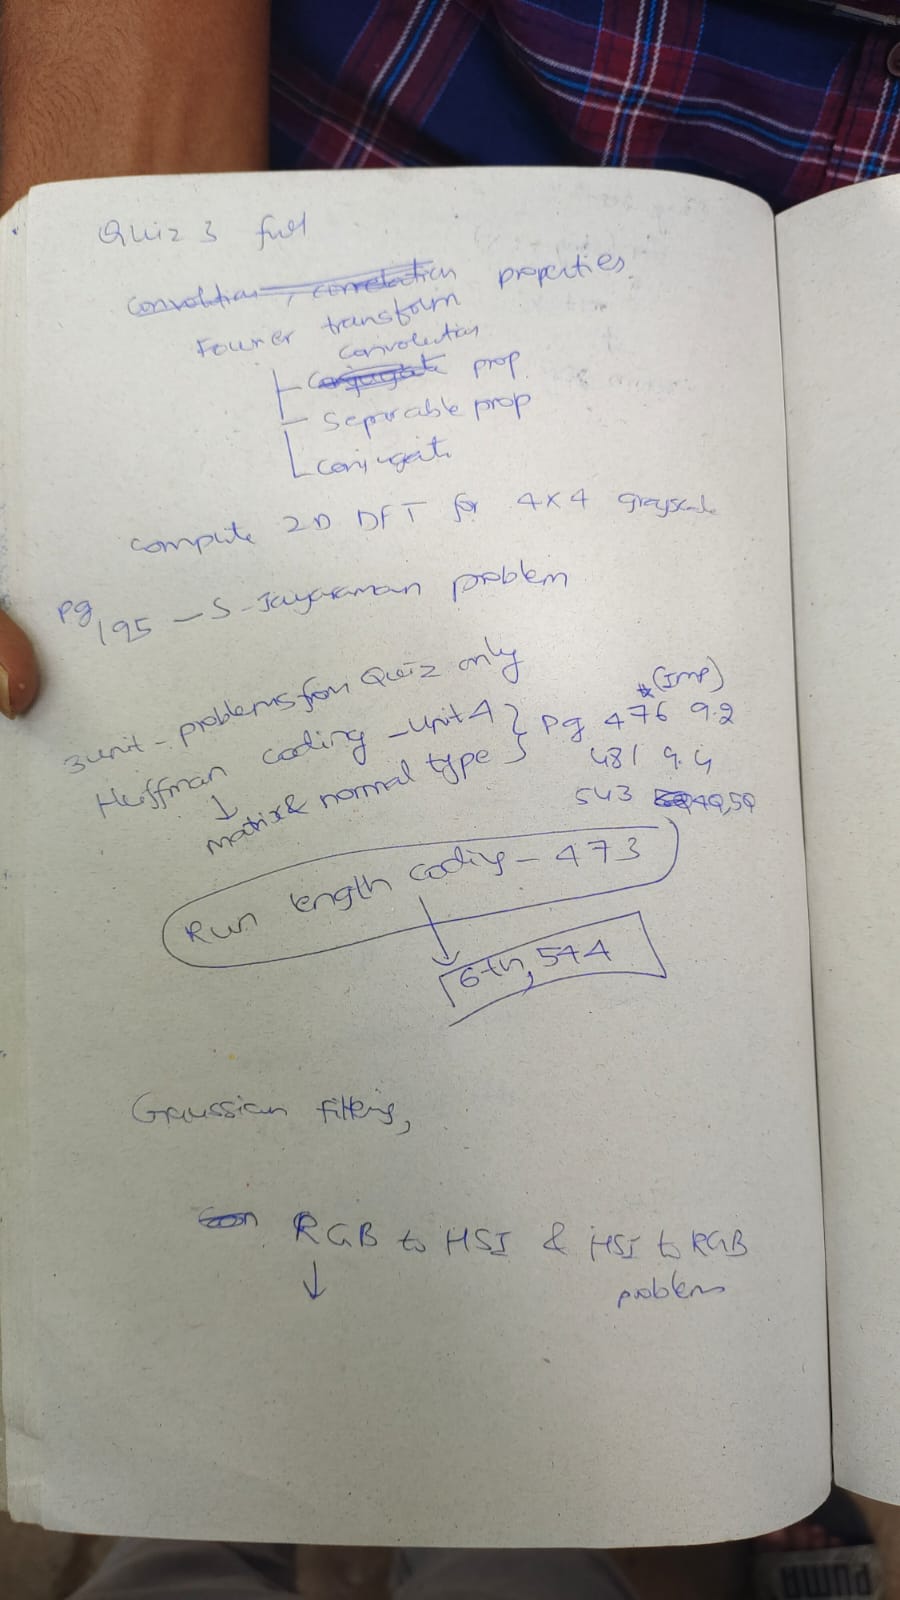 Quiz 3 full
Convolution, correlation properties.
Fourier transform
convolution
Conjugate prop.
Separable prop
conjugate
compute 2D DFT for 4x4 grayscale
Pg 195 - S-Jayaraman problem
3 unit - problems from Quiz only
Huffman coding - unit 4 } Pg 476 9.2 * (Imp)
↓ matrix & normal type 481 9.4
543 4Q, 5Q
Run length coding - 473
↓
6th, 544
Gaussian filtering,
RGB to HSI & HSI to RGB
↓ problems
PUMA